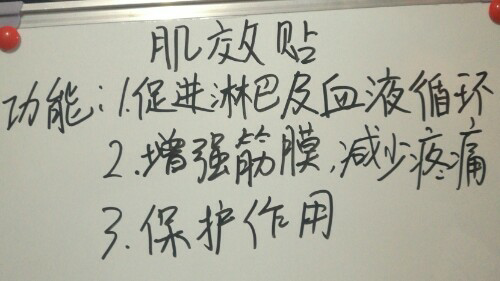 肌效贴
功能:1.促进淋巴及血液循环
2.增强筋膜,减少疼痛
3.保护作用